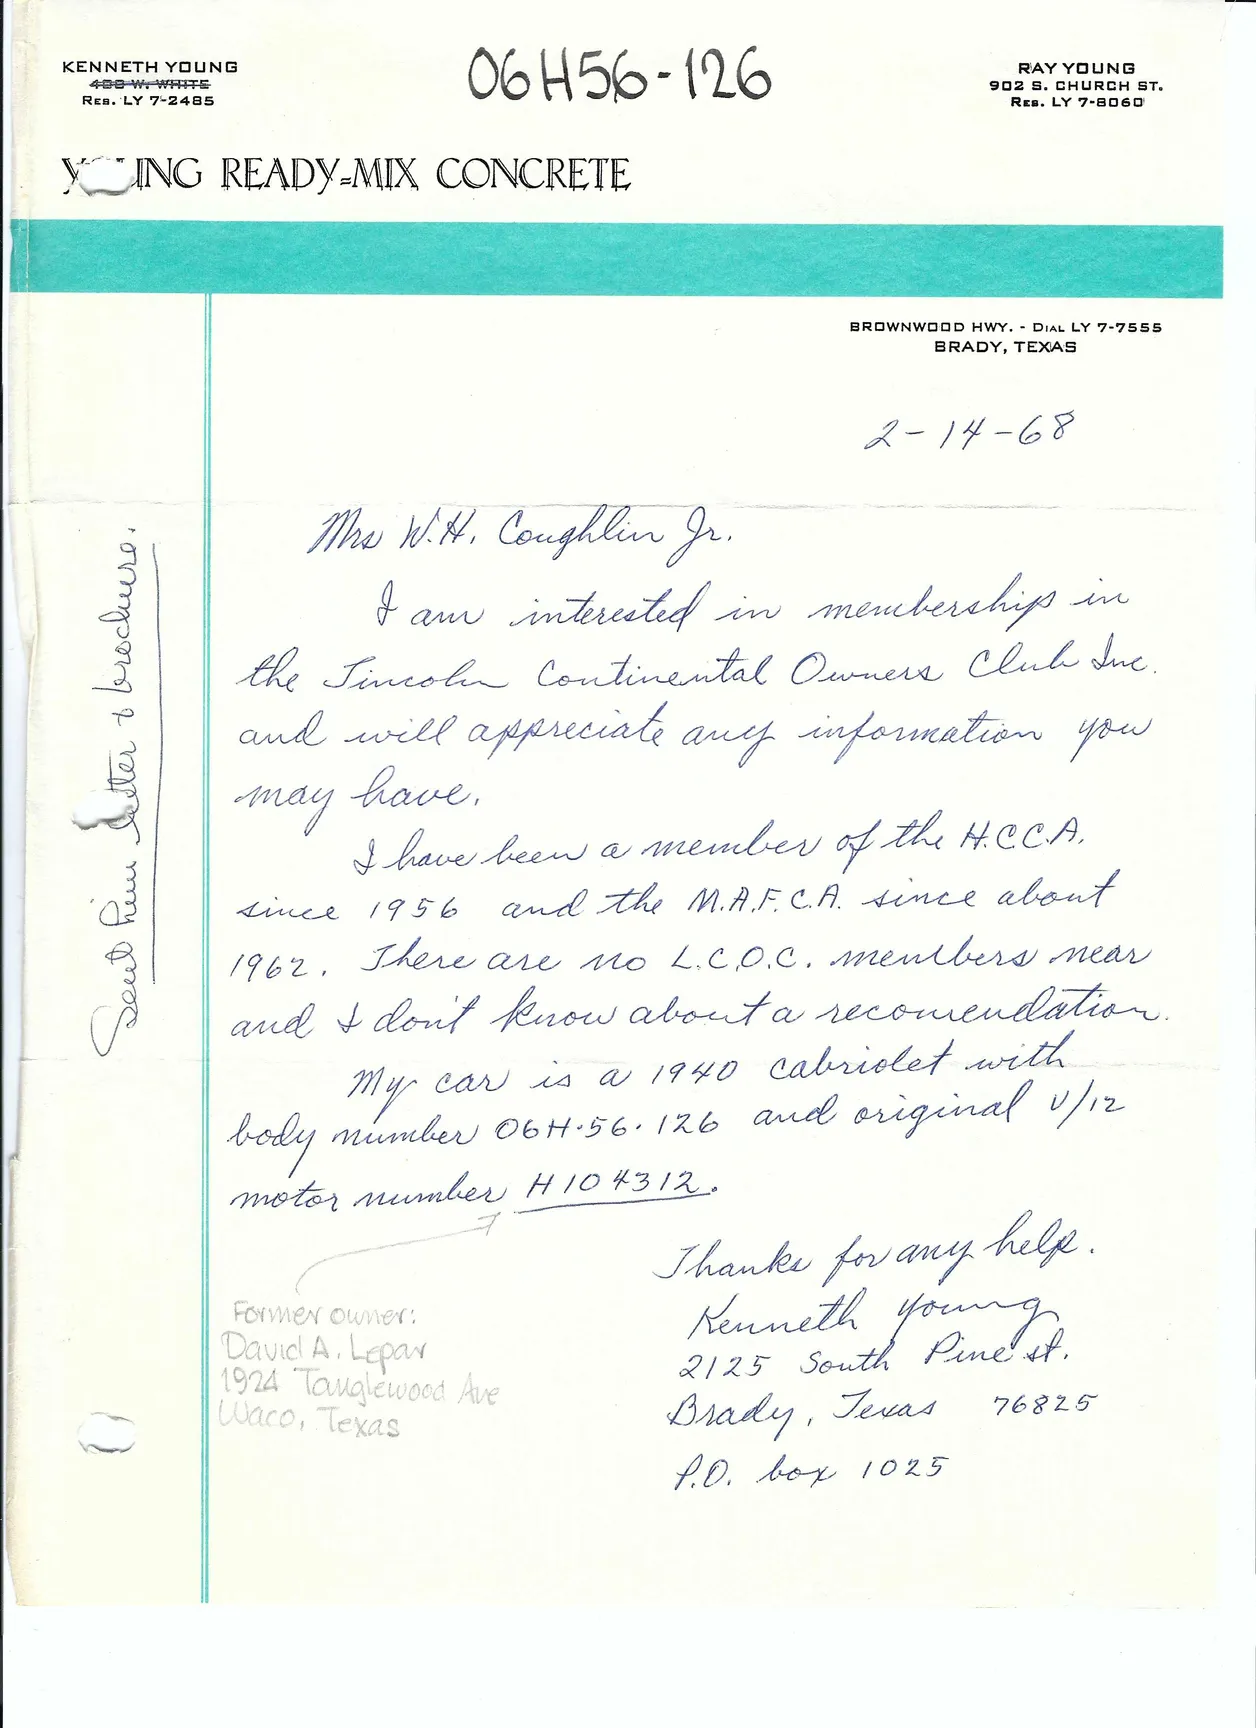 KENNETH YOUNG
400 W. WHITE
RES. LY 7-2485
06H56-126
RAY YOUNG
902 S. CHURCH ST.
RES. LY 7-8060
YOUNG READY-MIX CONCRETE
BROWNWOOD HWY. - DIAL LY 7-7555
BRADY, TEXAS
2-14-68
Mrs W.H. Coughlin Jr.
I am interested in membership in
the Lincoln Continental Owners Club Inc.
and will appreciate any information you
may have.
I have been a member of the H.C.C.A.
since 1956 and the M.A.F.C.A. since about
1962. There are no L.C.O.C. members near
and I don't know about a recomendation.
My car is a 1940 cabriolet with
body number 06H·56·126 and original V/12
motor number H104312.
Thanks for any help.
Kenneth Young
2125 South Pine st.
Brady, Texas 76825
P.O. box 1025
Former owner:
David A. Lepar
1924 Tanglewood Ave
Waco, Texas
Sent him letter & brochure.